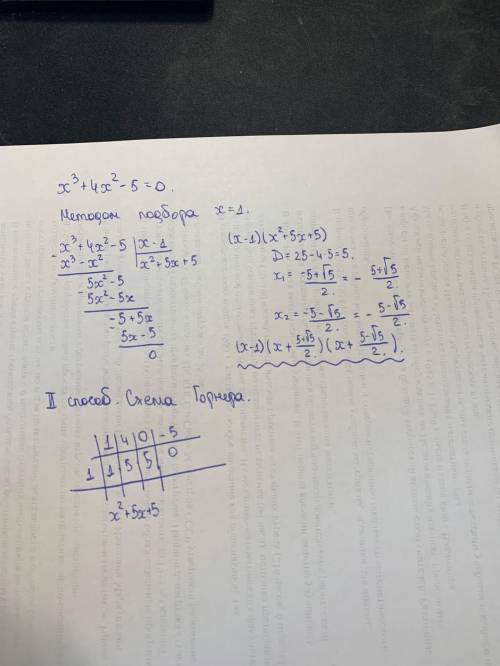 x³+4x²-5=0.
Методом подбора x=1.
x³+4x²-5 | x-1
x³-x² | x²+5x+5
5x²-5
5x²-5x
-5+5x
5x-5
0
(x-1)(x²+5x+5)
D=25-4·5=5.
x₁= (-5+√5)/2. = - (5+√5)/2.
x₂= (-5-√5)/2. = - (5-√5)/2.
(x-1)(x+ (5+√5)/2.)(x+ (5-√5)/2.).
II способ. Схема Горнера.
| 1 | 4 | 0 | -5
1 | 1 | 5 | 5 | 0
x²+5x+5